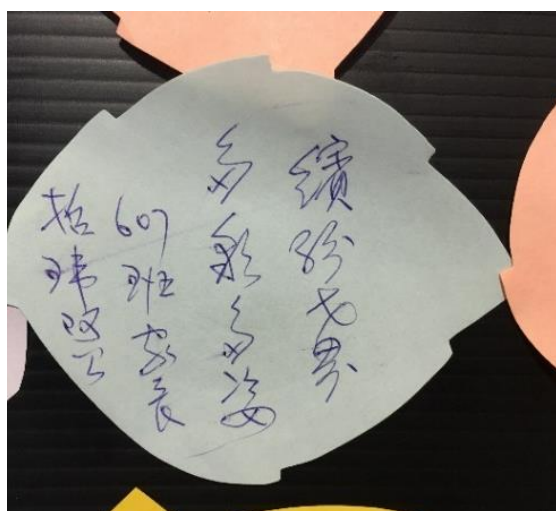 繽紛世界
多彩多姿
607班家長
哲瑋